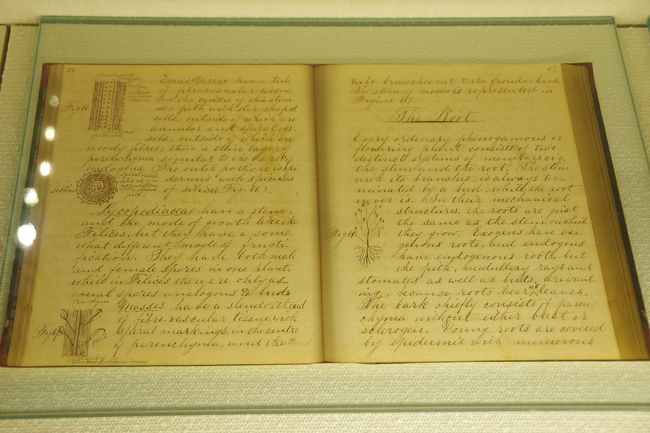 Equisetaceae have a tube
of fibrovascular tissue
in the centre of this stem
pith with star shaped
cells, outside of which are
annular and spiral ves-
sels, outside of which are
woody fibres, then a thin layer of
parenchyma similar to the bark
endogens. The outer portion is
dermis with spiculae
of silica (Fig.
Lycopodiaceae have a stem,
and the mode of growth like
Filices, but they have a some
what different mode of fructi
fication. They have both male
and female spores in one plant,
while in Filices there are only as
exual spores analogous to buds
Mosses have a slender thread
of fibro vascular tissue with
spiral markings in the centre
of parenchyma, and the
Fig
tube branches out to the fronds or
The stem of mosses is represented in
Figure
The Root.
Every ordinary phenogamous or
flowering plant consists of two
distinct systems of members viz.
the stem and the root. The stem
with its branches, is always ter
minated by a bud, while the root
never is. In their mechanical
structures the roots are just
the same as the stem which
they grow. Exogens have exo
genous roots, and endogens
have endogenous roots, but
the pith, medullary rays and
stomates as well as buds, are want
ing, because roots bear no leaves.
The bark chiefly consists of paren
chyma without either bast or
sclerogen. Young roots are covered
by epidermis with numerous
Fig